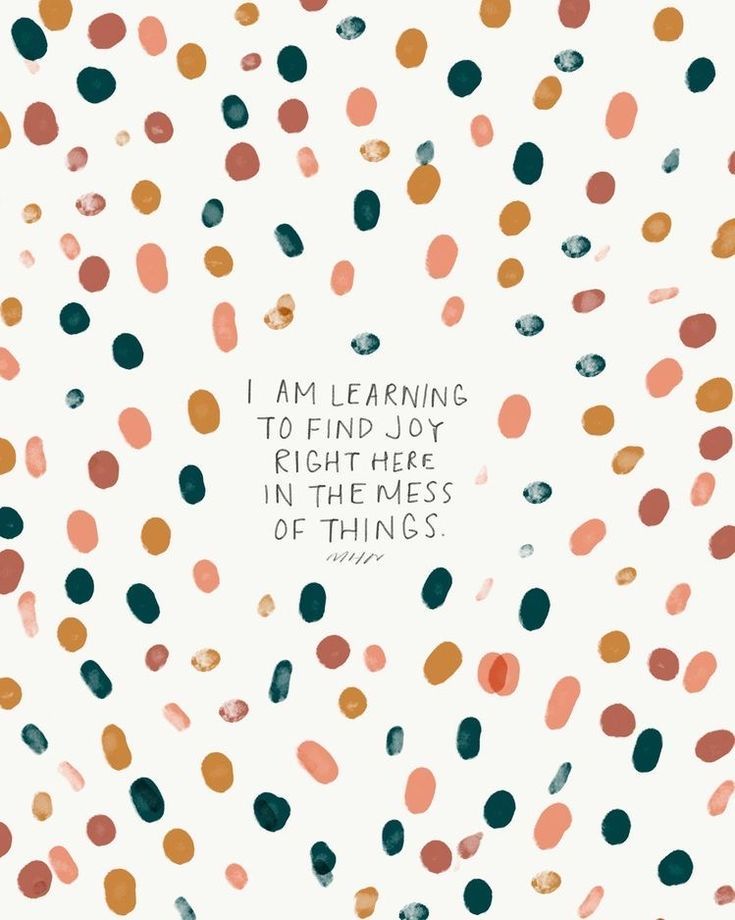 I AM LEARNING
TO FIND JOY
RIGHT HERE
IN THE MESS
OF THINGS.
MHN